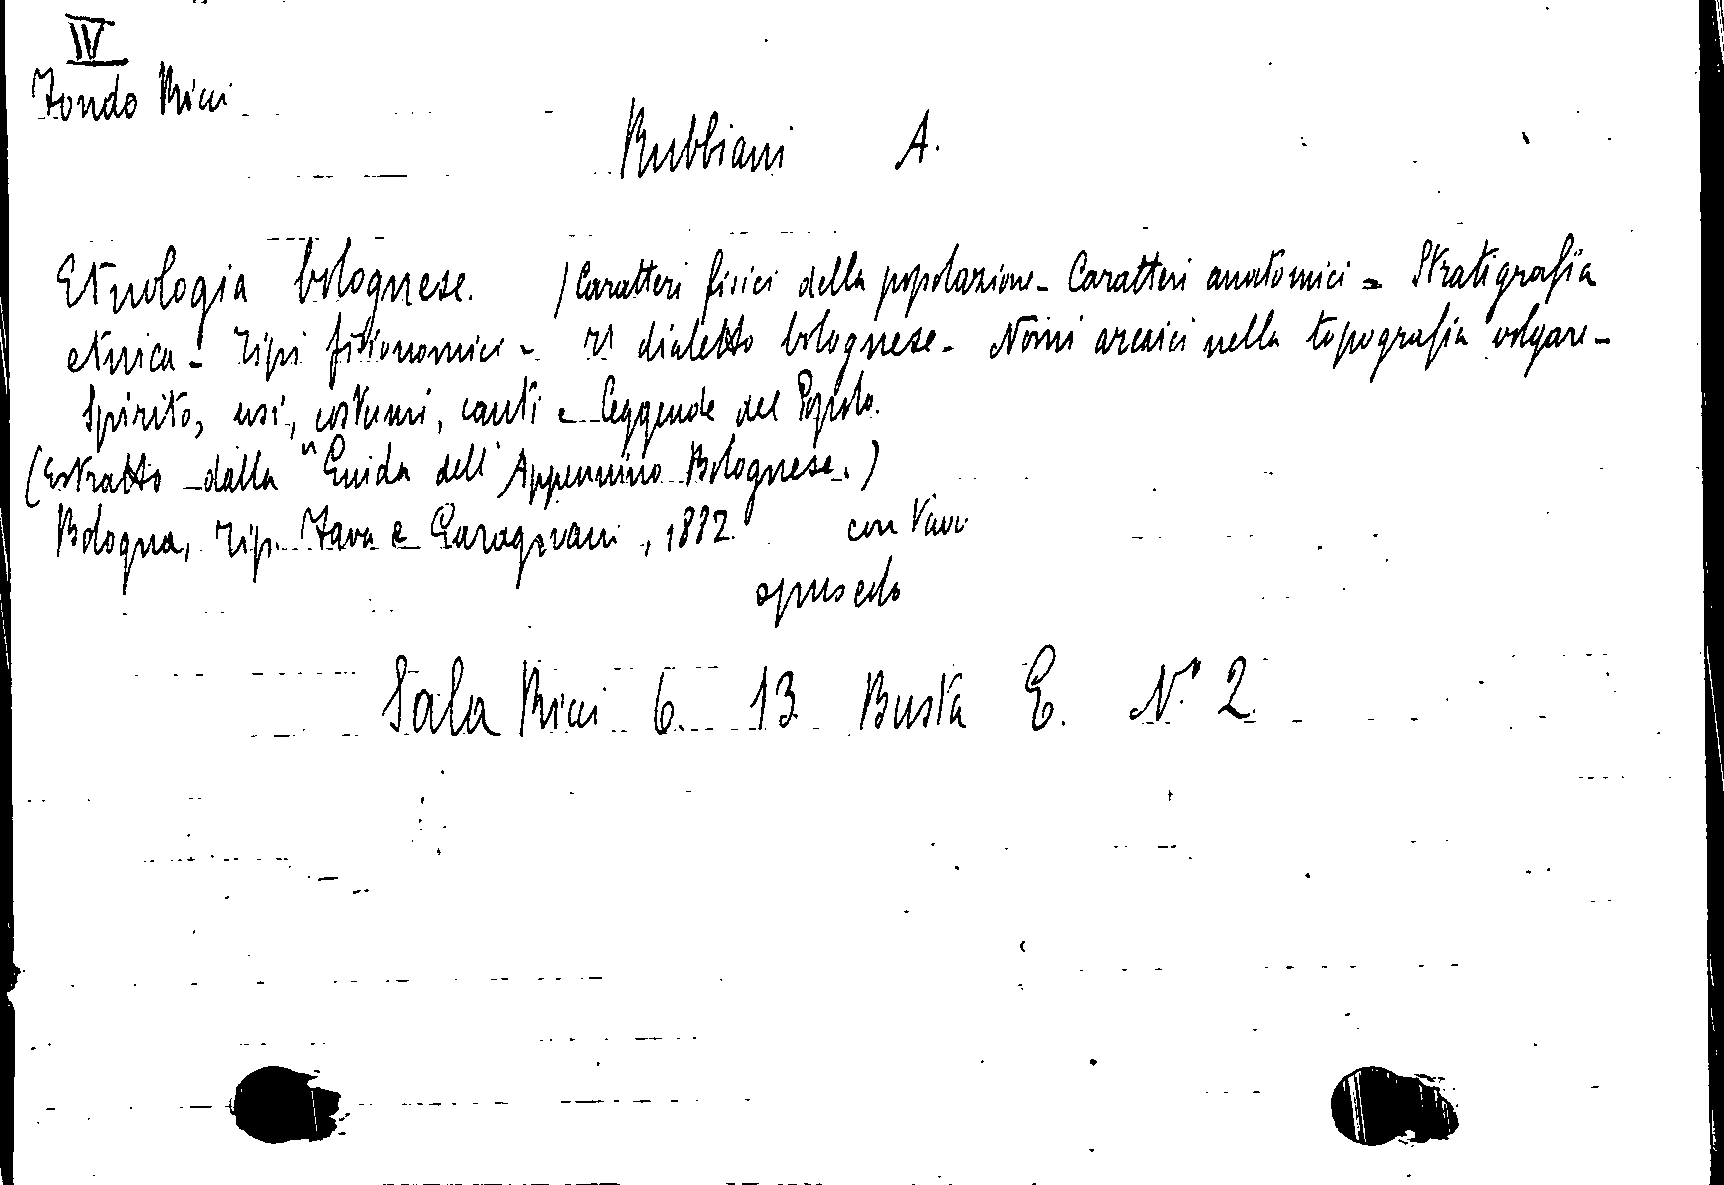 IV
Fondo Ricci
Rubbiani A.
Etnologia bolognese. (Caratteri fisici della popolazione - Caratteri anatomici - Stratigrafia
etnica - Tipi fisionomici - Il dialetto bolognese - Nomi arcaici nella topografia volgare -
Spirito, usi, costumi, canti e leggende del Popolo.
(Estratto dalla "Guida dell'Appennino Bolognese.)
Bologna, Tip. Fava e Garagnani, 1882
opuscolo
Sala Ricci 6. 13 Busta E. N° 2